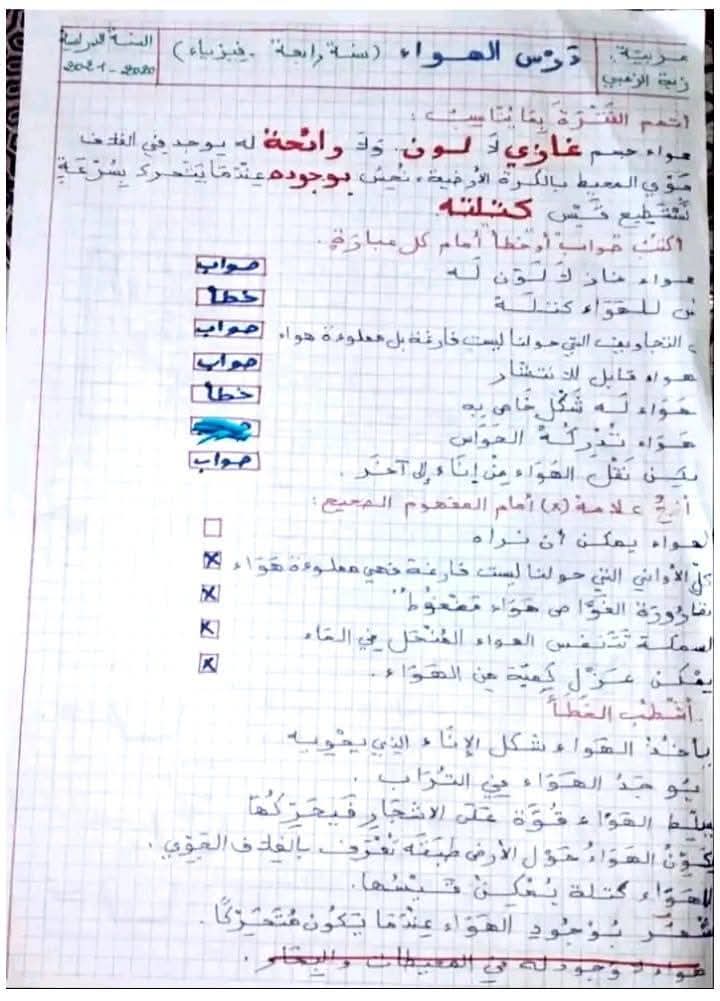 مربية:
زينة الزعبي
درس الهواء (سنة رابعة - فيزياء)
السنة الدراسية
2020-2021
أتمم الفقرة بما يناسب:
هواء جسم غازي لا لون ولا رائحة له يوجد في الغلاف
جوي المحيط بالكرة الأرضية، نحس بوجوده عندما يتحرك بسرعة
نستطيع قيس كتلته
أكتب صواب أو خطأ أمام كل عبارة.
هواء غاز لا لون له صواب
س للهواء كتلة خطأ
التجاويف التي حولنا ليست فارغة بل مملوءة هواء صواب
هواء قابل للانتشار صواب
هواء له شكل خاص به خطأ
هواء تدركه الحواس
يمكن نقل الهواء من إناء إلى آخر. صواب
أضع علامة (x) أمام المفهوم الصحيح:
الهواء يمكن أن نراه
كل الأواني التي حولنا ليست فارغة فهي مملوءة هواء x
قارورة الغواص هواء مضغوط x
السمكة تتنفس الهواء المنحل في الماء x
يمكن عزل كمية من الهواء. x
أشطب الخطأ
يأخذ الهواء شكل الإناء الذي يحويه
يوجد الهواء في التراب.
يسلط الهواء قوة على الأشجار فيحركها
يكون الهواء حول الأرض طبقة تعرف بالغلاف الجوي.
للهواء كتلة يمكن قيسها.
نشعر بوجود الهواء عندما يكون متحركا.
هواء لا وجود له في المحيطات والبحار.